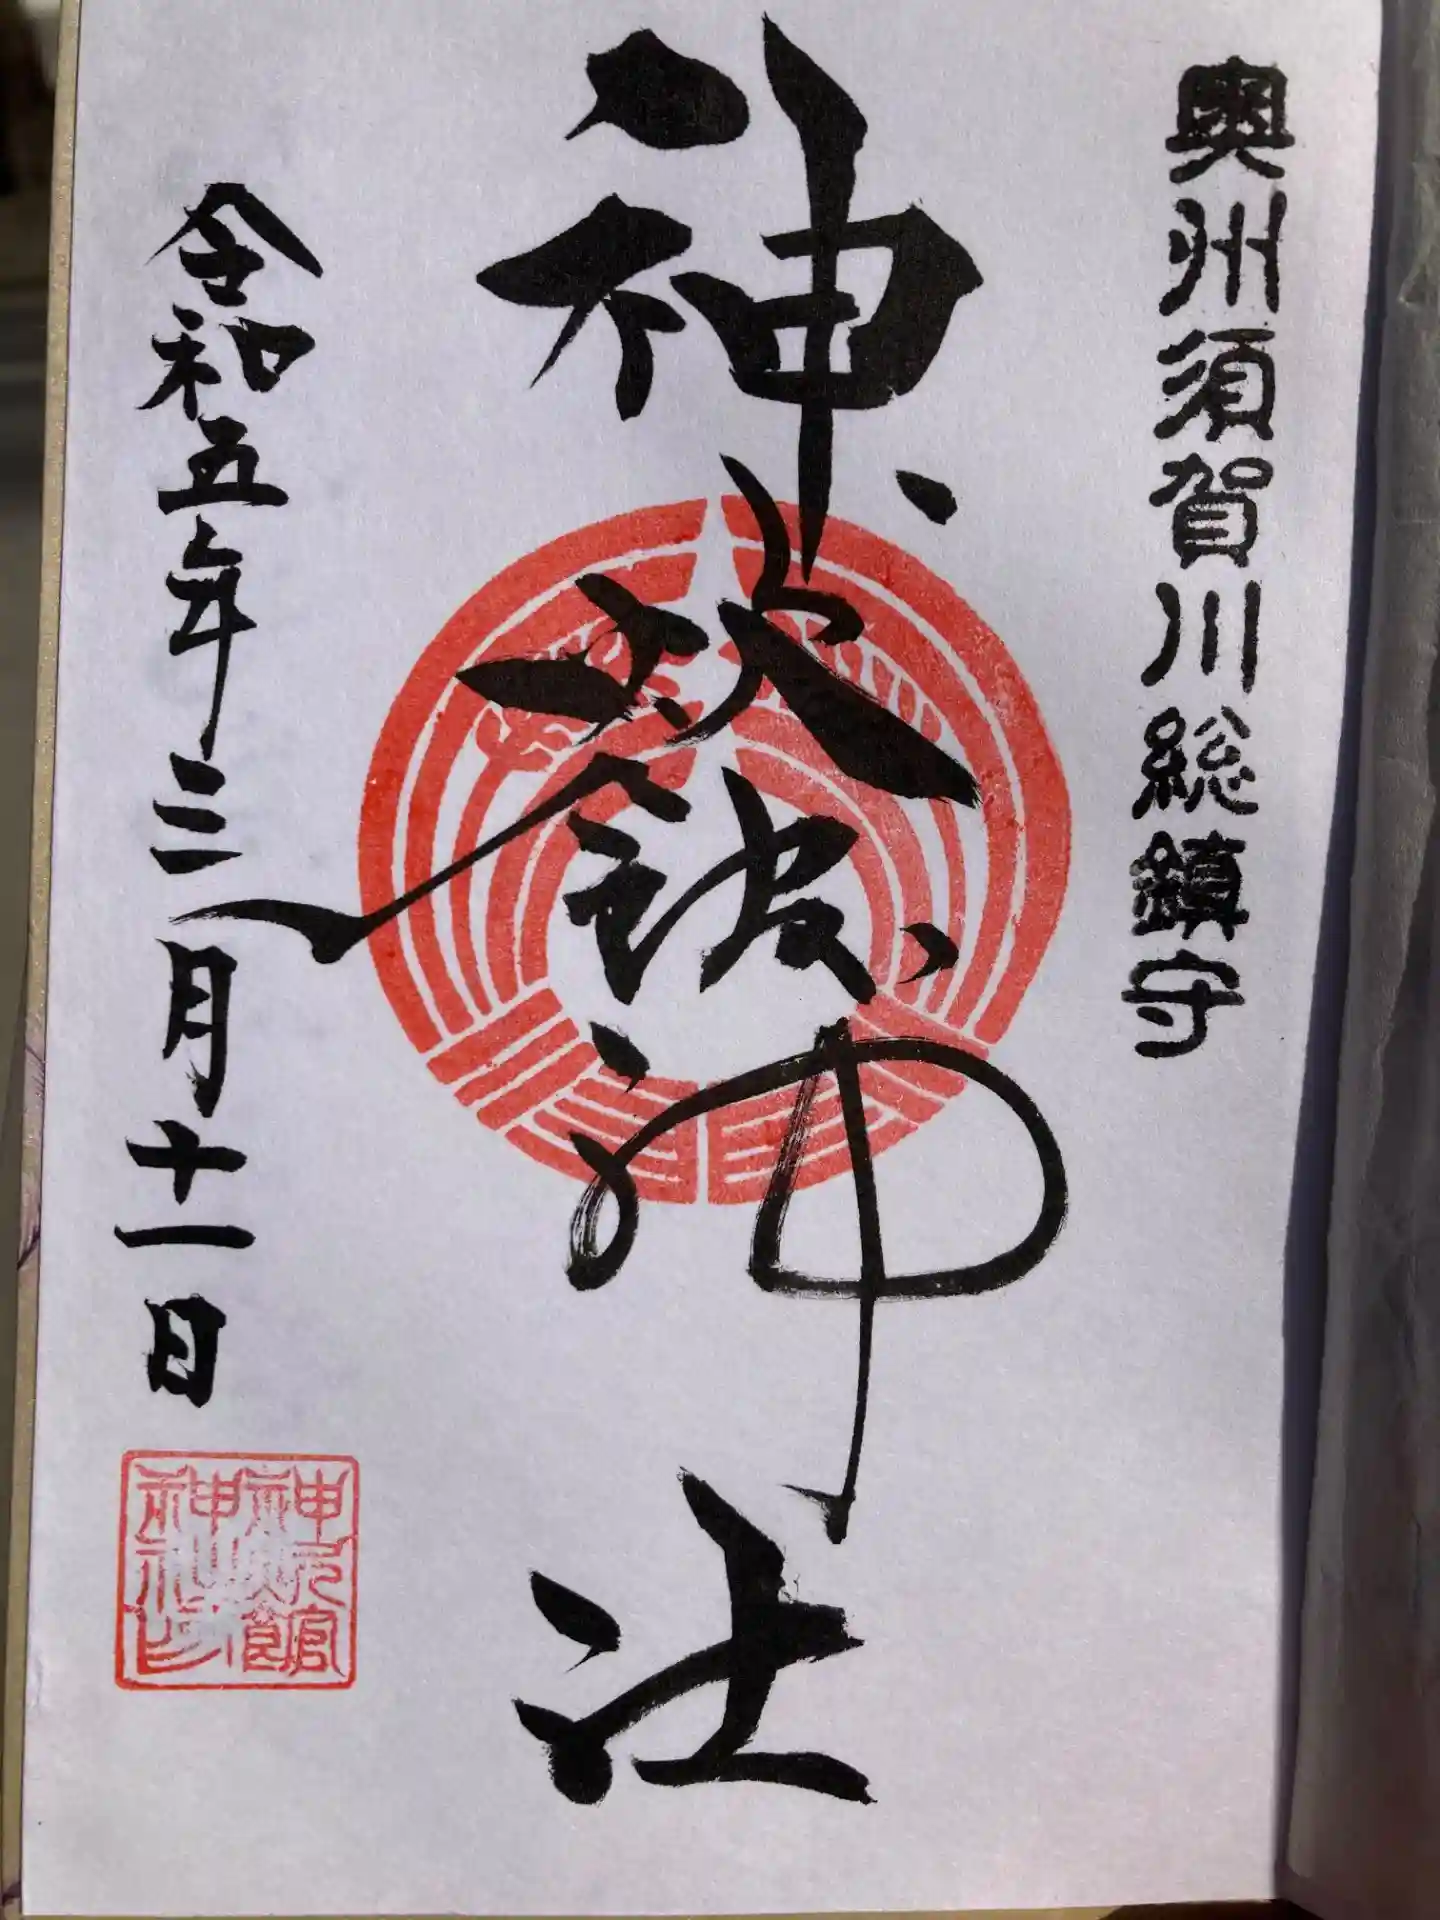 奥州須賀川総鎮守
神炊館神社
令和五年三月十一日
神炊館
神社